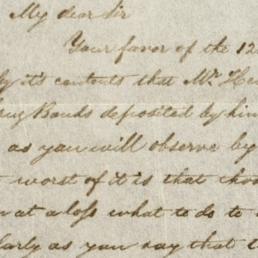 My dear Sir
Your favor of the 12
by it's contents that Mr. He
Bonds deposited by him
as you will observe by
worst of it is that
at a loss what to do to
as you say that